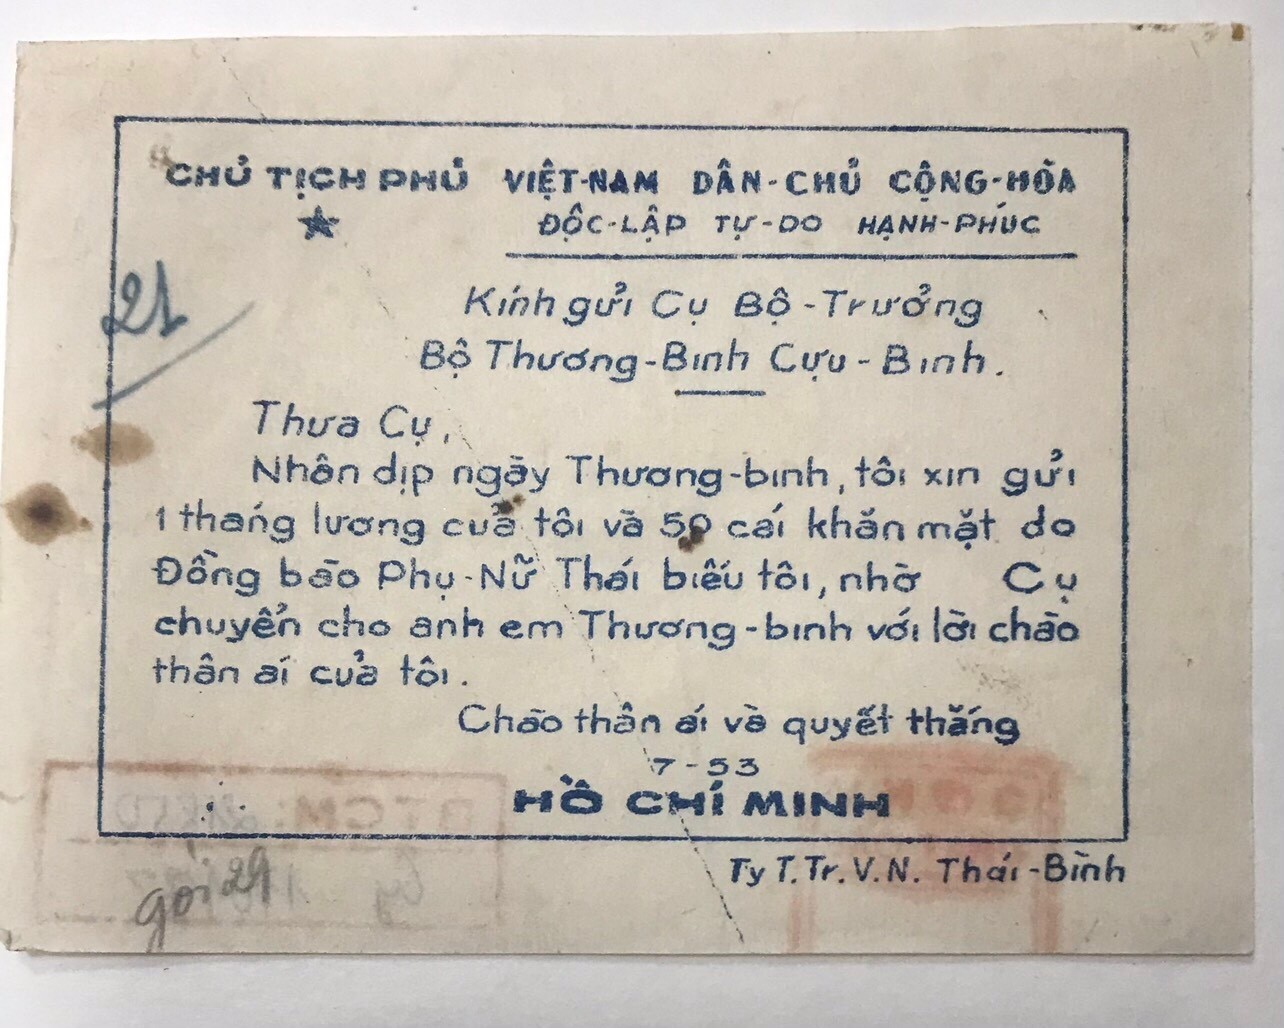 CHỦ TỊCH PHỦ VIỆT-NAM DÂN-CHỦ CỘNG-HÒA
ĐỘC-LẬP TỰ-DO HẠNH-PHÚC
21
Kính gửi Cụ Bộ-Trưởng
Bộ Thương-Binh Cựu-Binh.
Thưa Cụ,
Nhân dịp ngày Thương-binh, tôi xin gửi
1 tháng lương của tôi và 50 cái khăn mặt do
Đồng bào Phụ-Nữ Thái biếu tôi, nhờ Cụ
chuyển cho anh em Thương-binh với lời chào
thân ái của tôi.
Chào thân ái và quyết thắng
7-53
HỒ CHÍ MINH
Ty T.Tr.V.N. Thái-Bình
gói 29